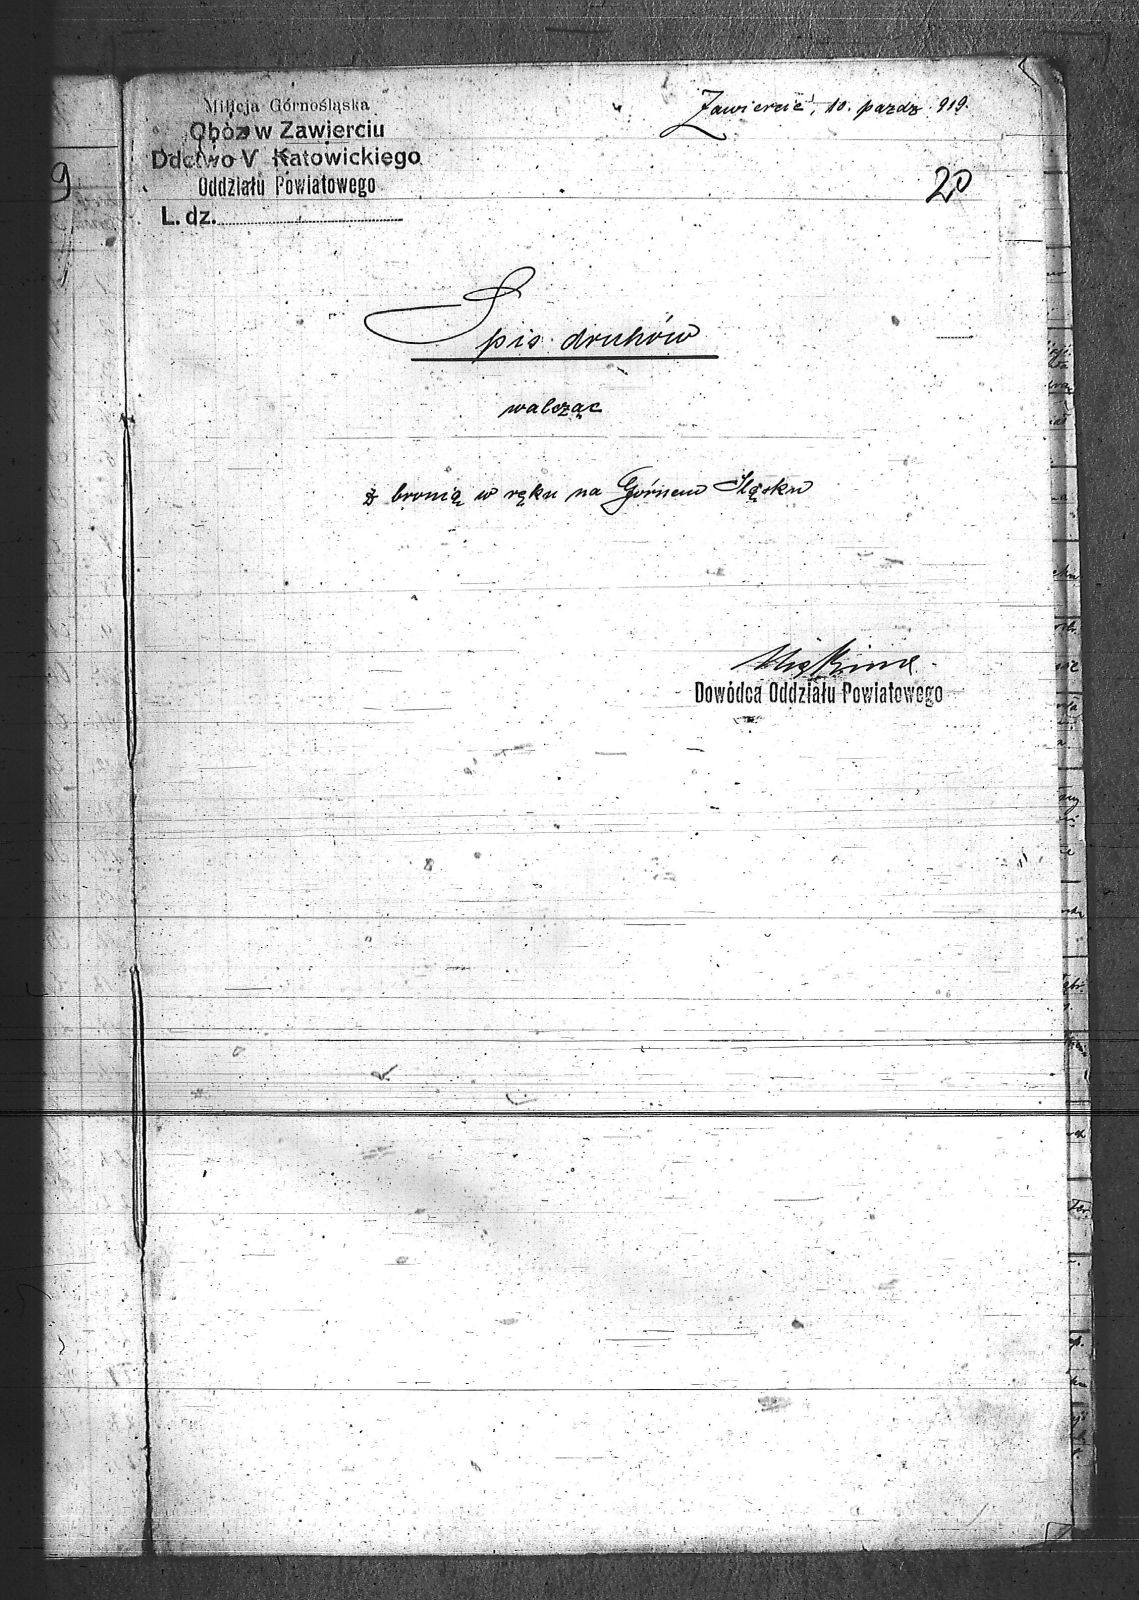 Milicja Górnośląska
Obóz w Zawierciu
Ddctwo V Katowickiego
Oddziału Powiatowego
L. dz.
Zawiercie, 10. pazdz. 919.
20
9
Spis druhów
walcząc
z bronią w ręku na Górnem Śląsku
Dowódca Oddziału Powiatowego